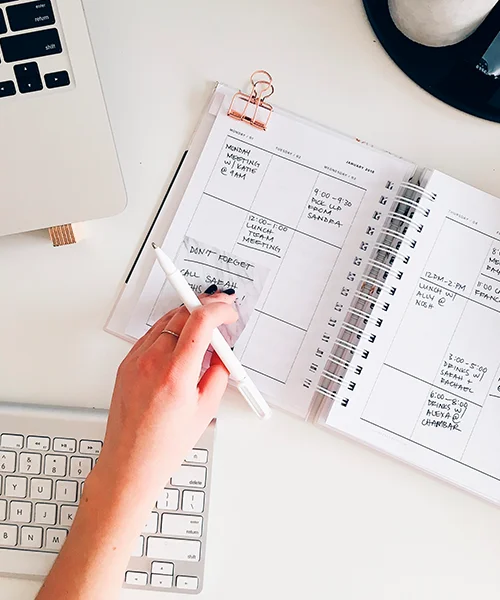 enter
return
shift
MONDAY / 01
TUESDAY / 02
WEDNESDAY / 03
JANUARY 2018
MONDAY
MEETING
W/ KATIE
@ 9AM
9:00-9:30
PICK UP
FROM
SANDRA.
12:00-1:00
LUNCH
TEAM
MEETING
DON'T FORGET
CALL SARAH
12PM-2PM
LUNCH W/
ALLY @
NOSH
3:00-5:00
DRINKS W/
SARAH +
RACHAEL
6:00-8:00
DRINKS W/
ALEXA @
CHAMBAR
delete
enter
return
shift
6 7 8 9 0
Y U I O P
H J K
N M